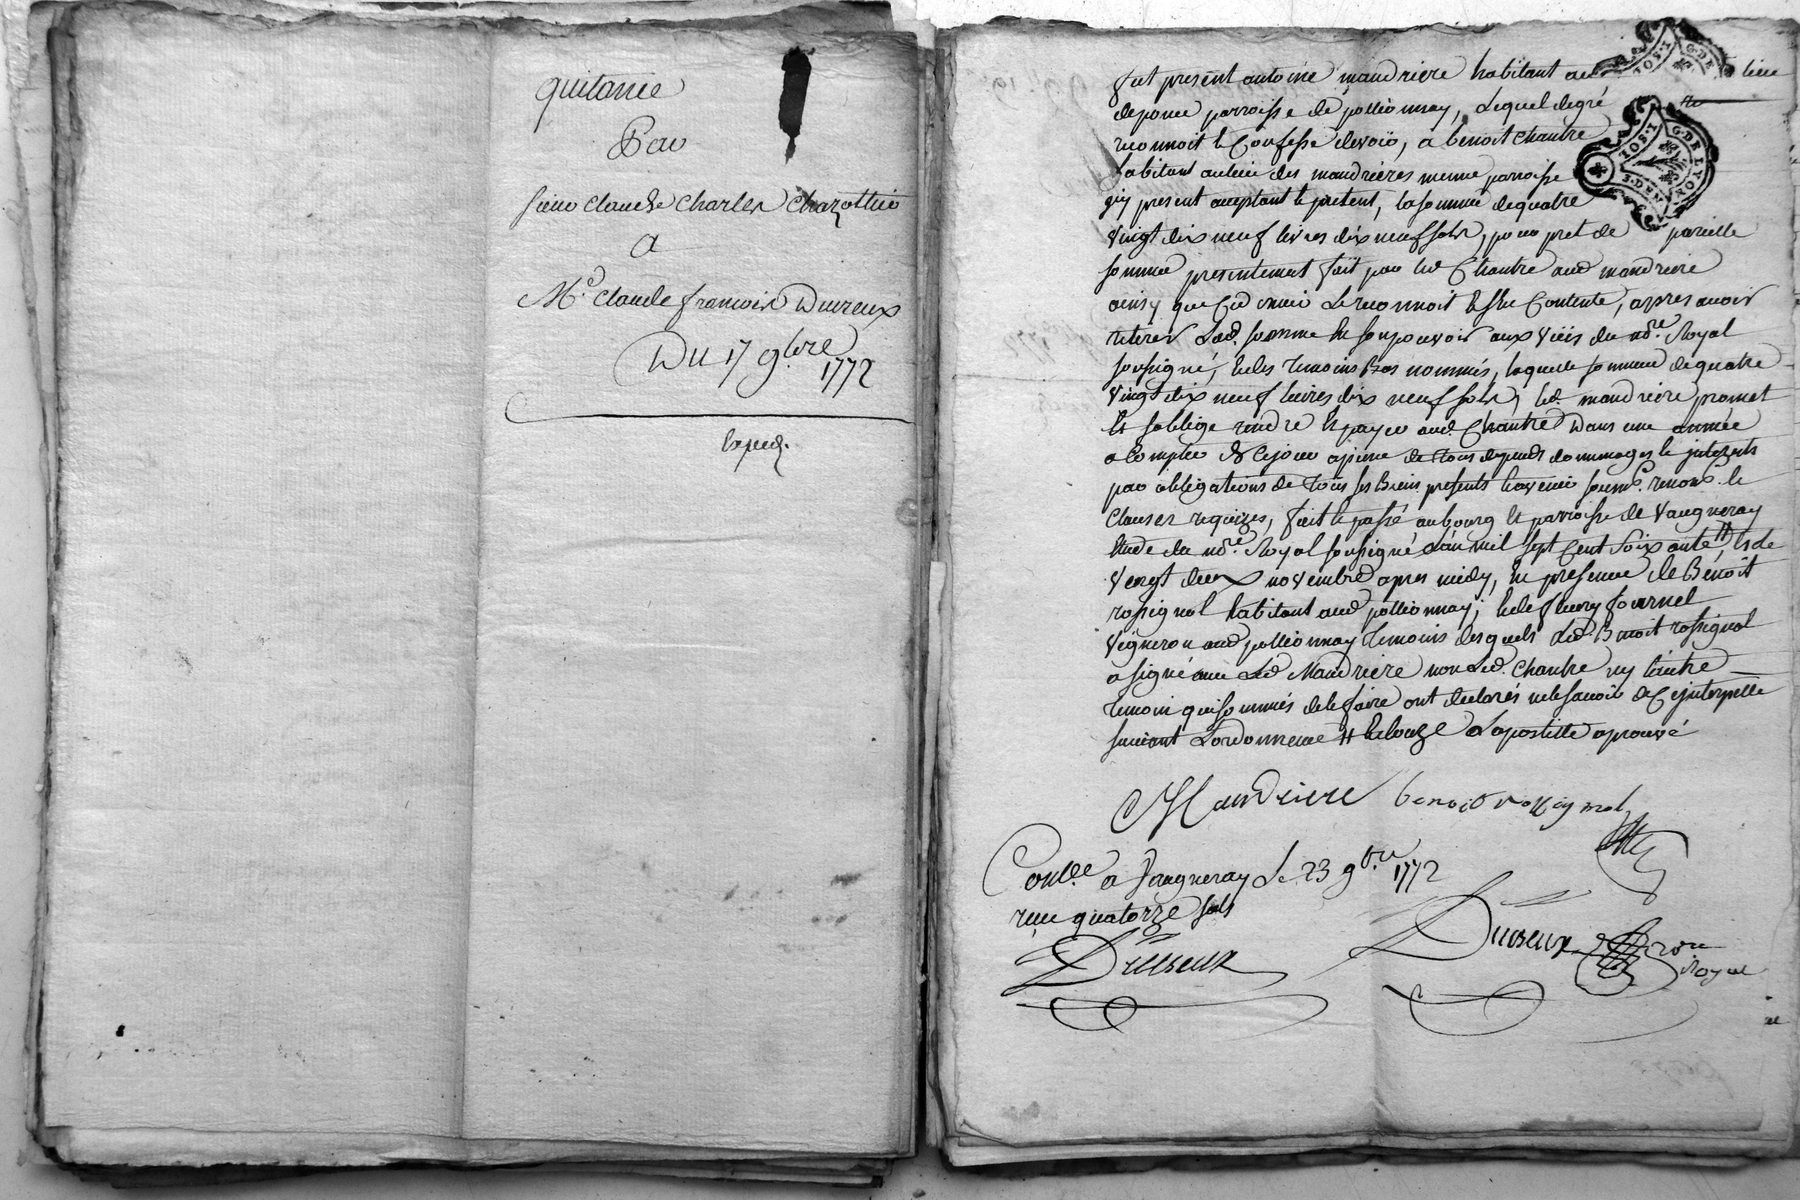 quitance
Par
sieur claude Charles Chazottier
A
Me. claude francois Duvreux
Du 17 9bre
1772
Exped.
fut present antoine mandriere habitant au lieu
deponce parroisse de pollionnay, Lequel degré
reconnoit & Confesse devoir, a benoit Chantre
habitant aulieu des mandrieres meme parroisse
icy present acceptant le present, lasomme dequatre
vingt dix neuf livres dix neuf sols, pour pret de pareille
somme presentement fait par led Chantre aud mandriere
ainsy que Led mari Le reconnoit & sen Contente, apres avoir
retirer Lad. somme En sonpouvoir aux vües du nore. Royal
soussigné, & des temoins Bas nommés, laquelle somme dequatre
vingt dix neuf livres dix neuf sols, led. mandriere promet
Et soblige rendre Et payer aud. Chantre Dans une année
a Compter de Cejour apeine de tous depends dommages & jnterets
par obligations de tous ses Biens presents & avenir soums. renons. &
Clauses requizes, fait & passé aubourg Et parroisse de Vaugneray
Etude du nore. Royal soussigné L'an mil sept Cent soixante #, & de
vengt deux novembre apres midy, En presence de Benoit
rosignol habitant aud pollionnay, & de fleury fournel
vigneron aud pollionnay temoins desquels Led. Benoit rossignol
a signé avec Led Mandriere non Led. Chantre ny Lautre
temoin quisommés delefaire ont declarés nelesavoir de Cejnterpellé
suivant Lordonnance # & douze Lapostille aprouvé
Mandriere benoit rossignol
Conlle. a Vaugneray Le 23 9bre 1772
reçu quatorze sols
Duvreux
Duvreux nore
Royal
G. DE
1. SOL
G. DE LYON
1. SOL